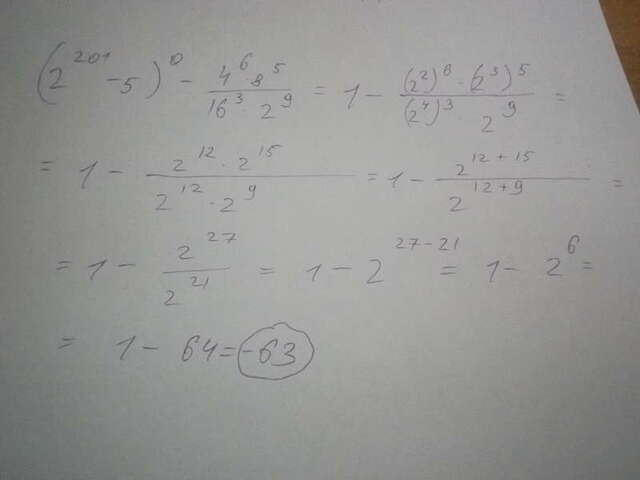 (2^201 - 5)^0 - (4^6 · 8^5)/(16^3 · 2^9) = 1 - ((2^2)^6 · (2^3)^5)/((2^4)^3 · 2^9) =
= 1 - (2^12 · 2^15)/(2^12 · 2^9) = 1 - 2^(12+15)/2^(12+9) =
= 1 - 2^27/2^21 = 1 - 2^(27-21) = 1 - 2^6 =
= 1 - 64 = -63